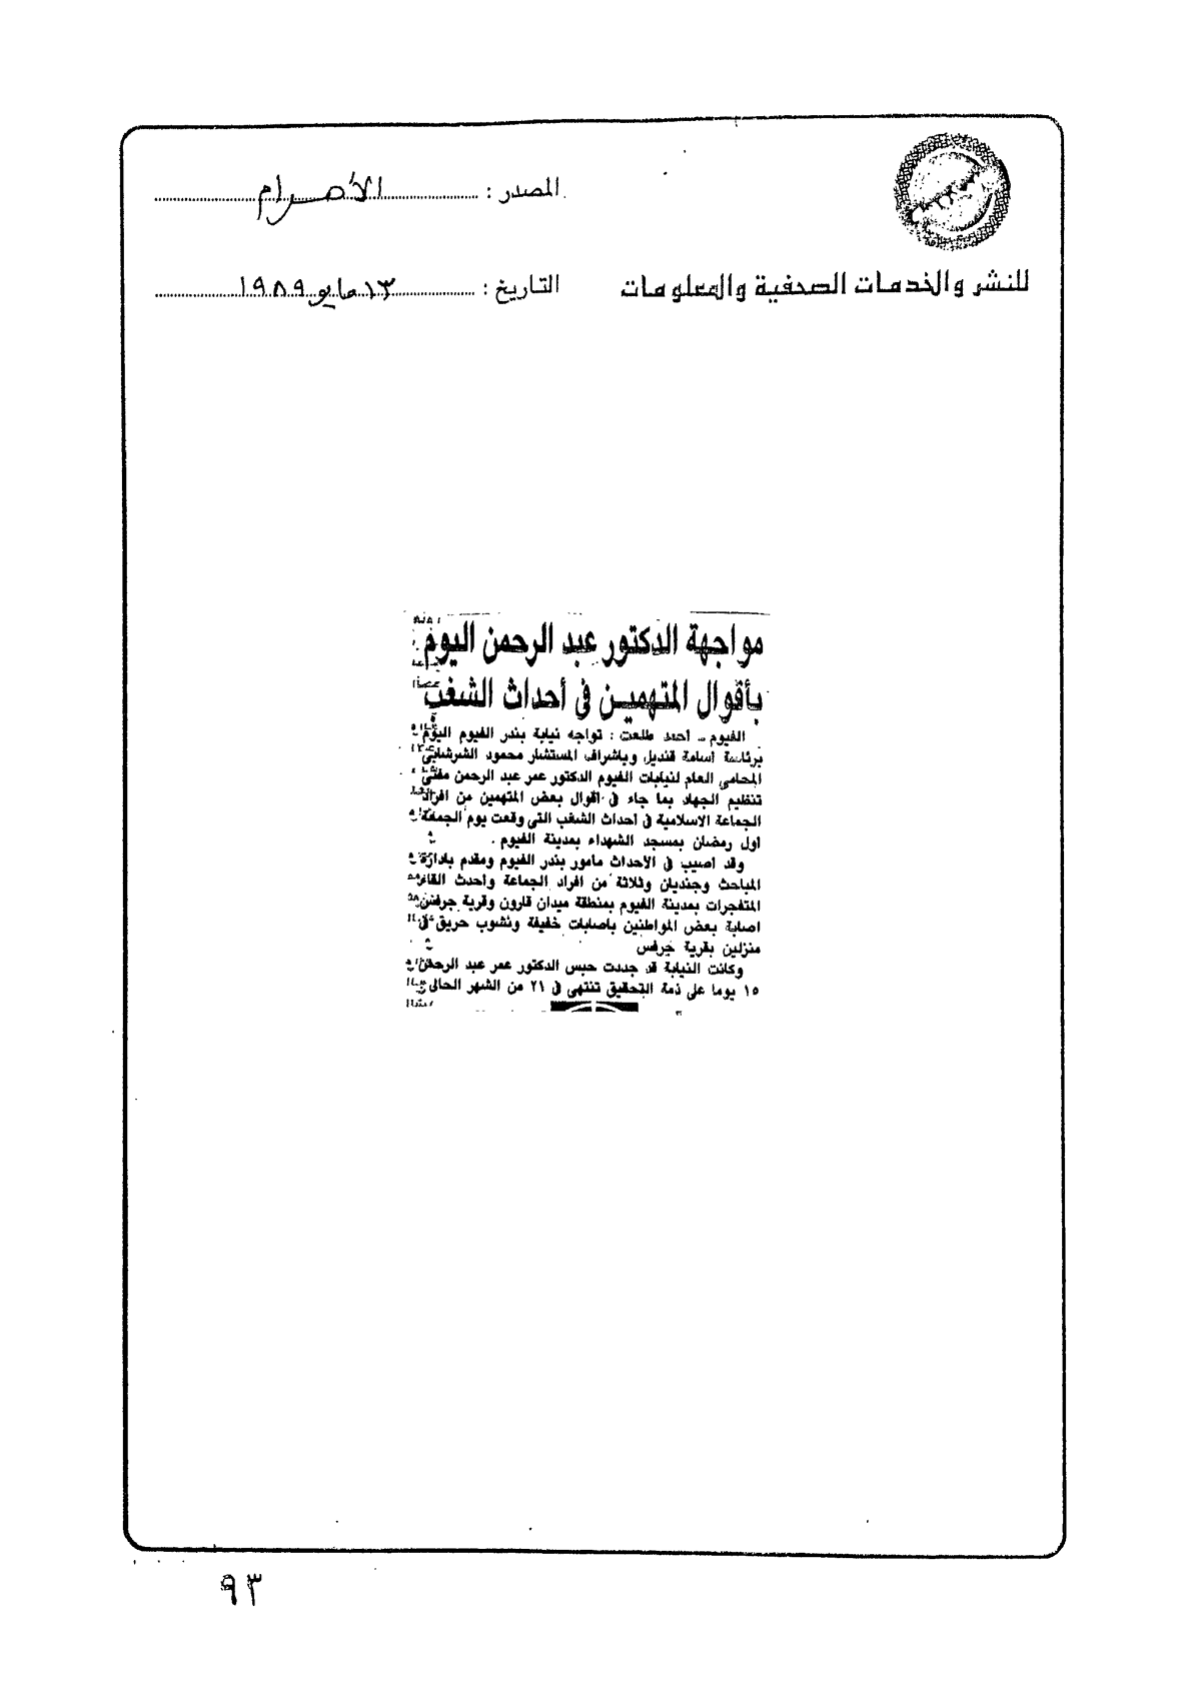 المصدر : الأهرام
للنشر والخدمات الصحفية والمعلومات
التاريخ : ١٣ مايو ١٩٨٩
مواجهة الدكتور عبد الرحمن اليوم
بأقوال المتهمين فى أحداث الشغب
الفيوم ـ احمد طلعت : تواجه نيابة بندر الفيوم اليوم
برئاسة اسامة قنديل وباشراف المستشار محمود الشرشابى
المحامى العام لنيابات الفيوم الدكتور عمر عبد الرحمن مفتى
تنظيم الجهاد بما جاء فى اقوال بعض المتهمين من افراد
الجماعة الاسلامية فى احداث الشغب التى وقعت يوم الجمعة
اول رمضان بمسجد الشهداء بمدينة الفيوم .
وقد اصيب فى الاحداث مامور بندر الفيوم ومقدم بادارة
المباحث وجنديان وثلاثة من افراد الجماعة واحدث القاء
المتفجرات بمدينة الفيوم بمنطقة ميدان قارون وقرية جرفس
اصابة بعض المواطنين باصابات خفيفة ونشوب حريق فى
منزلين بقرية جرفس
وكانت النيابة قد جددت حبس الدكتور عمر عبد الرحمن
١٥ يوما على ذمة التحقيق تنتهى فى ٢١ من الشهر الحالى
٩٣